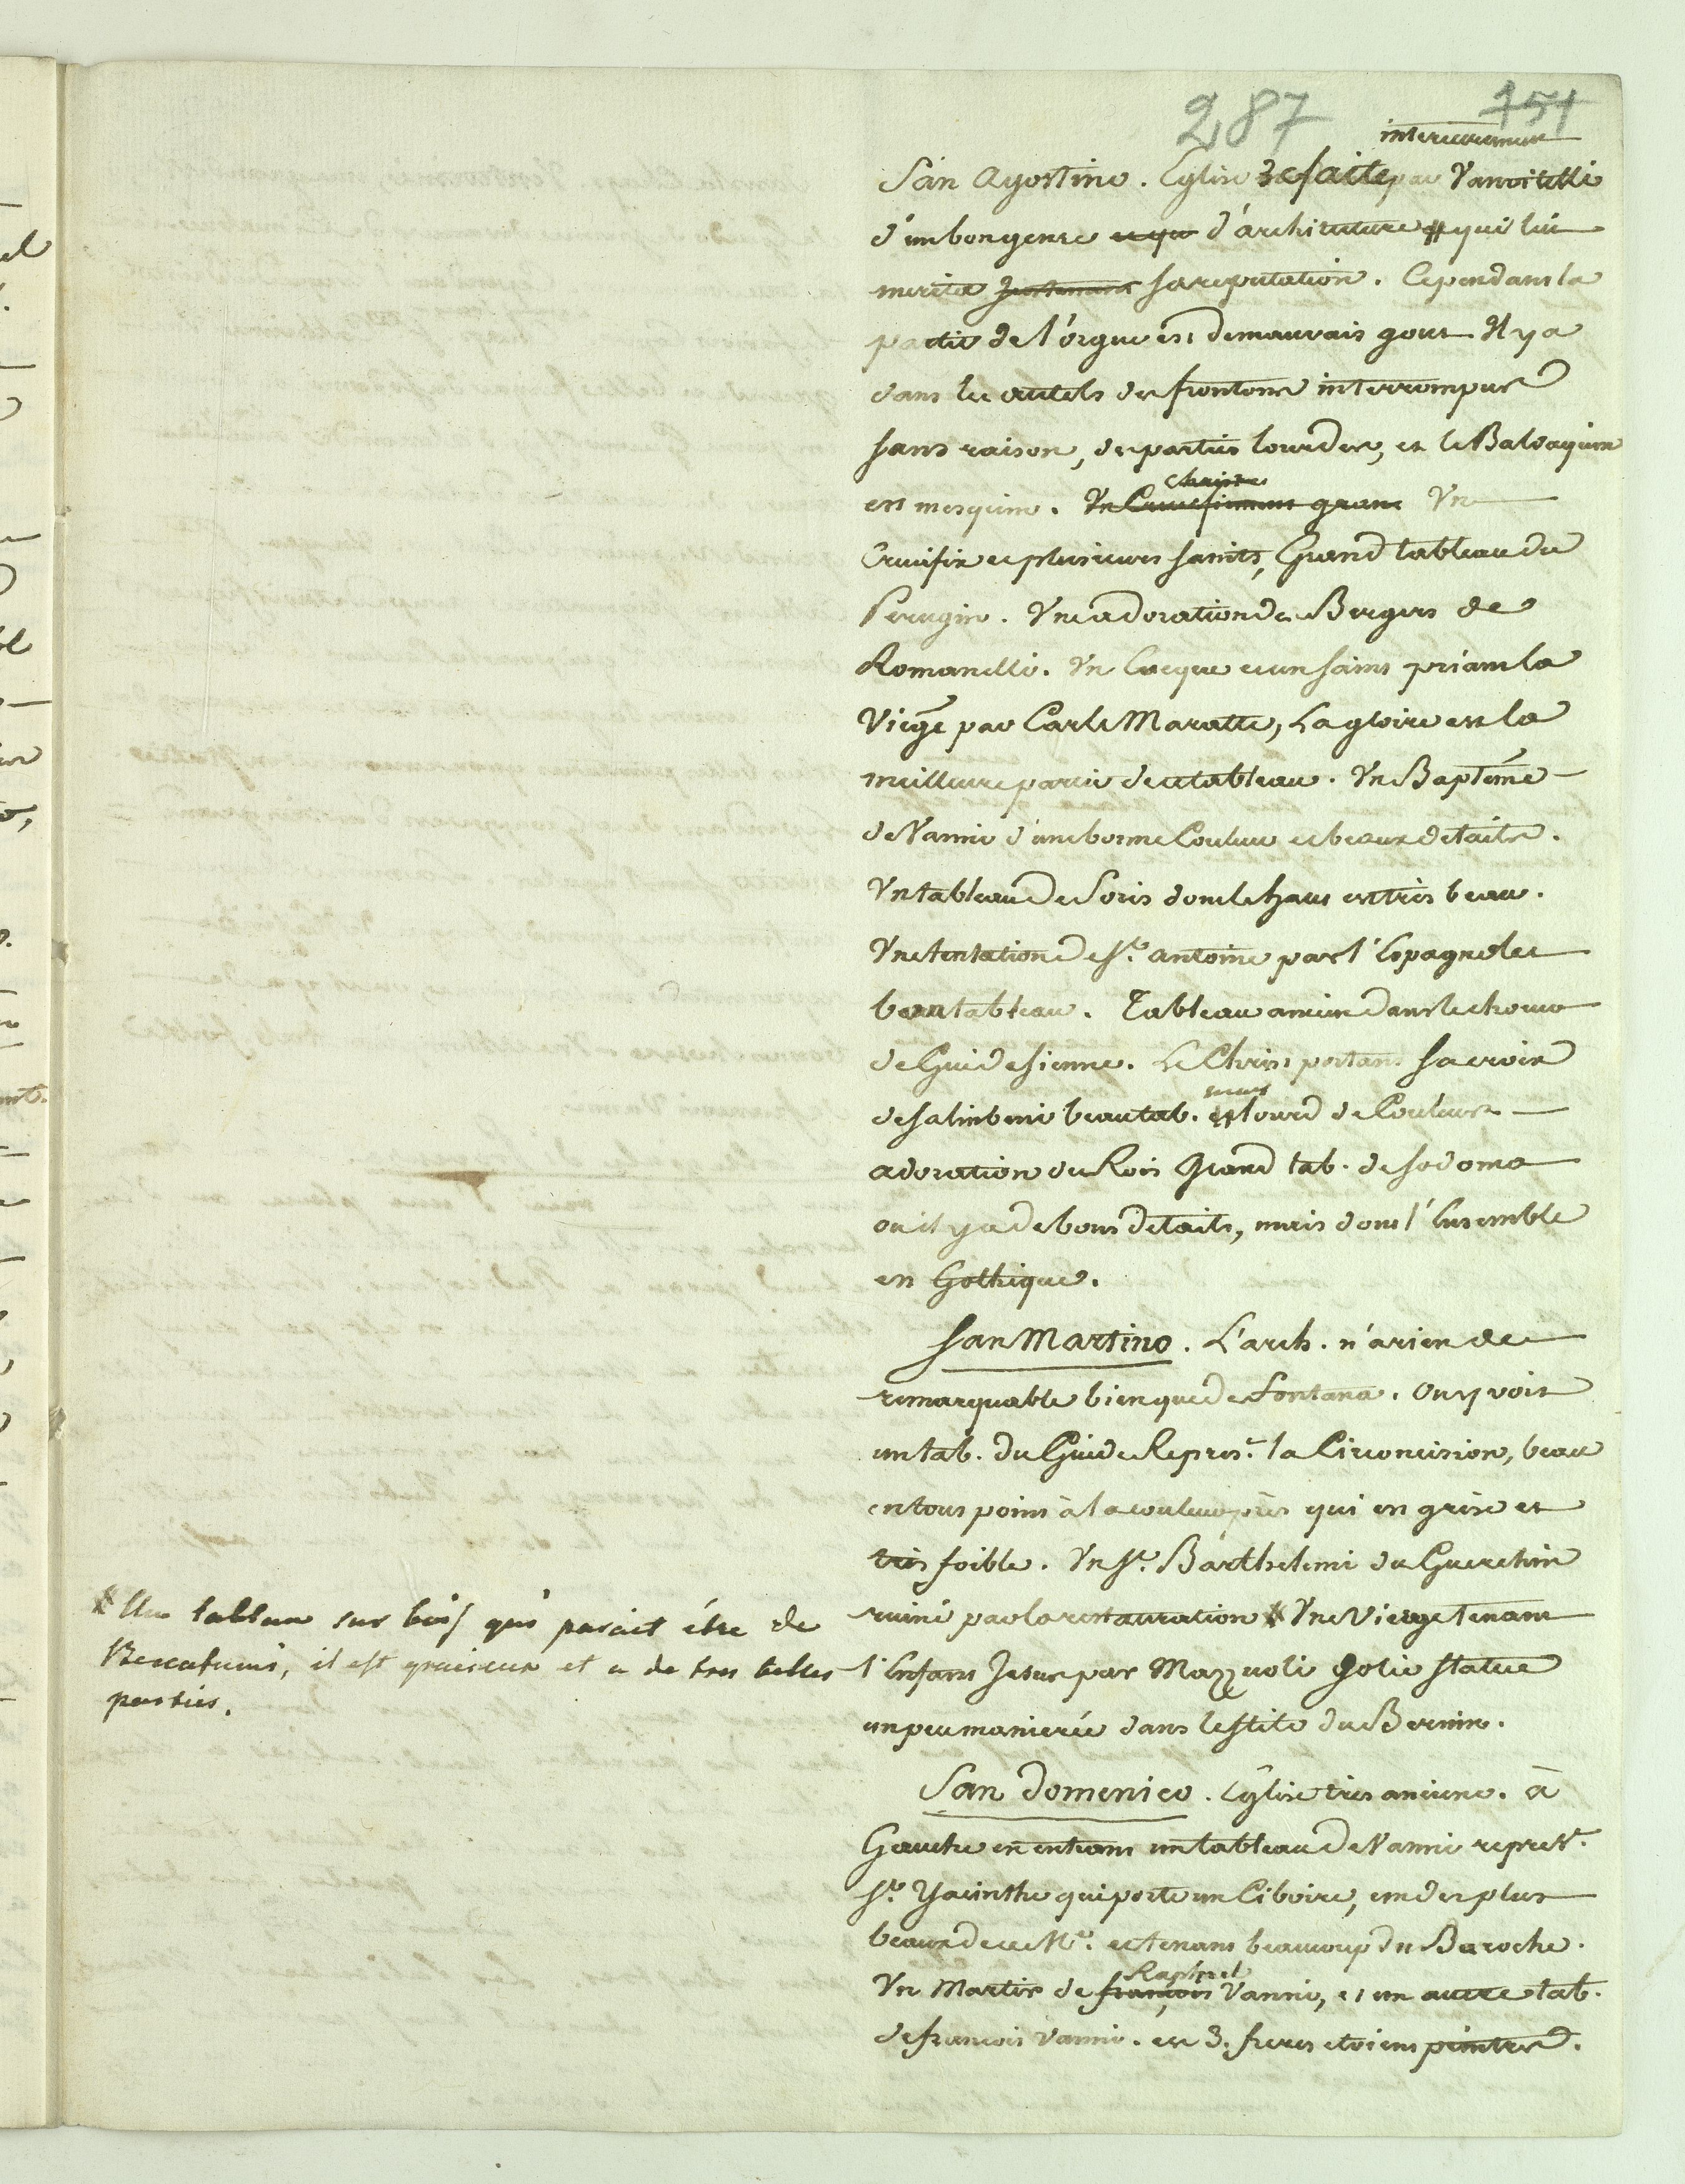 287 151
interieurement
San Agostino. Eglise refaite par Vanvitelli
d'un bon genre et qu d'architecture qui lui
merita justement sa reputation. Cependant la
partie de l'orgue est de mauvais gout Il y a
dans les autels des frontons interrompus
sans raison, des parties lourdes, et le Baldaquin
est mesquin. Un Crucifiement grand Un
Christ
Crucifix et plusieurs saints, Grand tableau du
Perugin. Une adoration des Bergers de
Romanelli. Un Eveque et un saint priant la
Vierge par Carle Maratte, La gloire est la
meilleure partie de ce tableau. Un Baptême
de Vanni d'une bonne Couleur et beaux details.
Un tableau de Soris dont le haut est très beau.
Une tentation de St. Antoine par l'Espagnolet
beau tableau. Tableau ancien dans le choeur
de Gui de sienne. Le Christ portant sa croix
de salimbeni beau tab. et lourd de Couleur
mais
adoration des Rois Grand tab. de sodoma
ou il y a de bons details, mais dont l'Ensemble
est Gothique.
San Martino. L'arch. n'a rien de
remarquable bien que de Fontana. On y voit
un tab. du Guide Repres.t la Circoncision, beau
en tous points à la couleur près qui est grise et
très foible. Un St. Barthelemi du Guerchin
ruiné par la restauration # Une Vierge tenant
l'Enfant Jesus par Mazzuoli Jolie statue
un peu manierée dans le stile du Bernin.
# Un tableau sur bois qui parait être de
Beccafumi, il est gracieux et a de tres belles
parties.
San Domenico. Eglise très anciene. à
Gauche en entrant un tableau de Vanni repret.
St. Yacinthe qui porte un Ciboire, un des plus
beaux de ce Me. et tenant beaucoup du Baroche.
Raphael
Un Martir de françois Vanni, et un autre tab.
de francois Vanni. ces 3. freres etoient peintres.